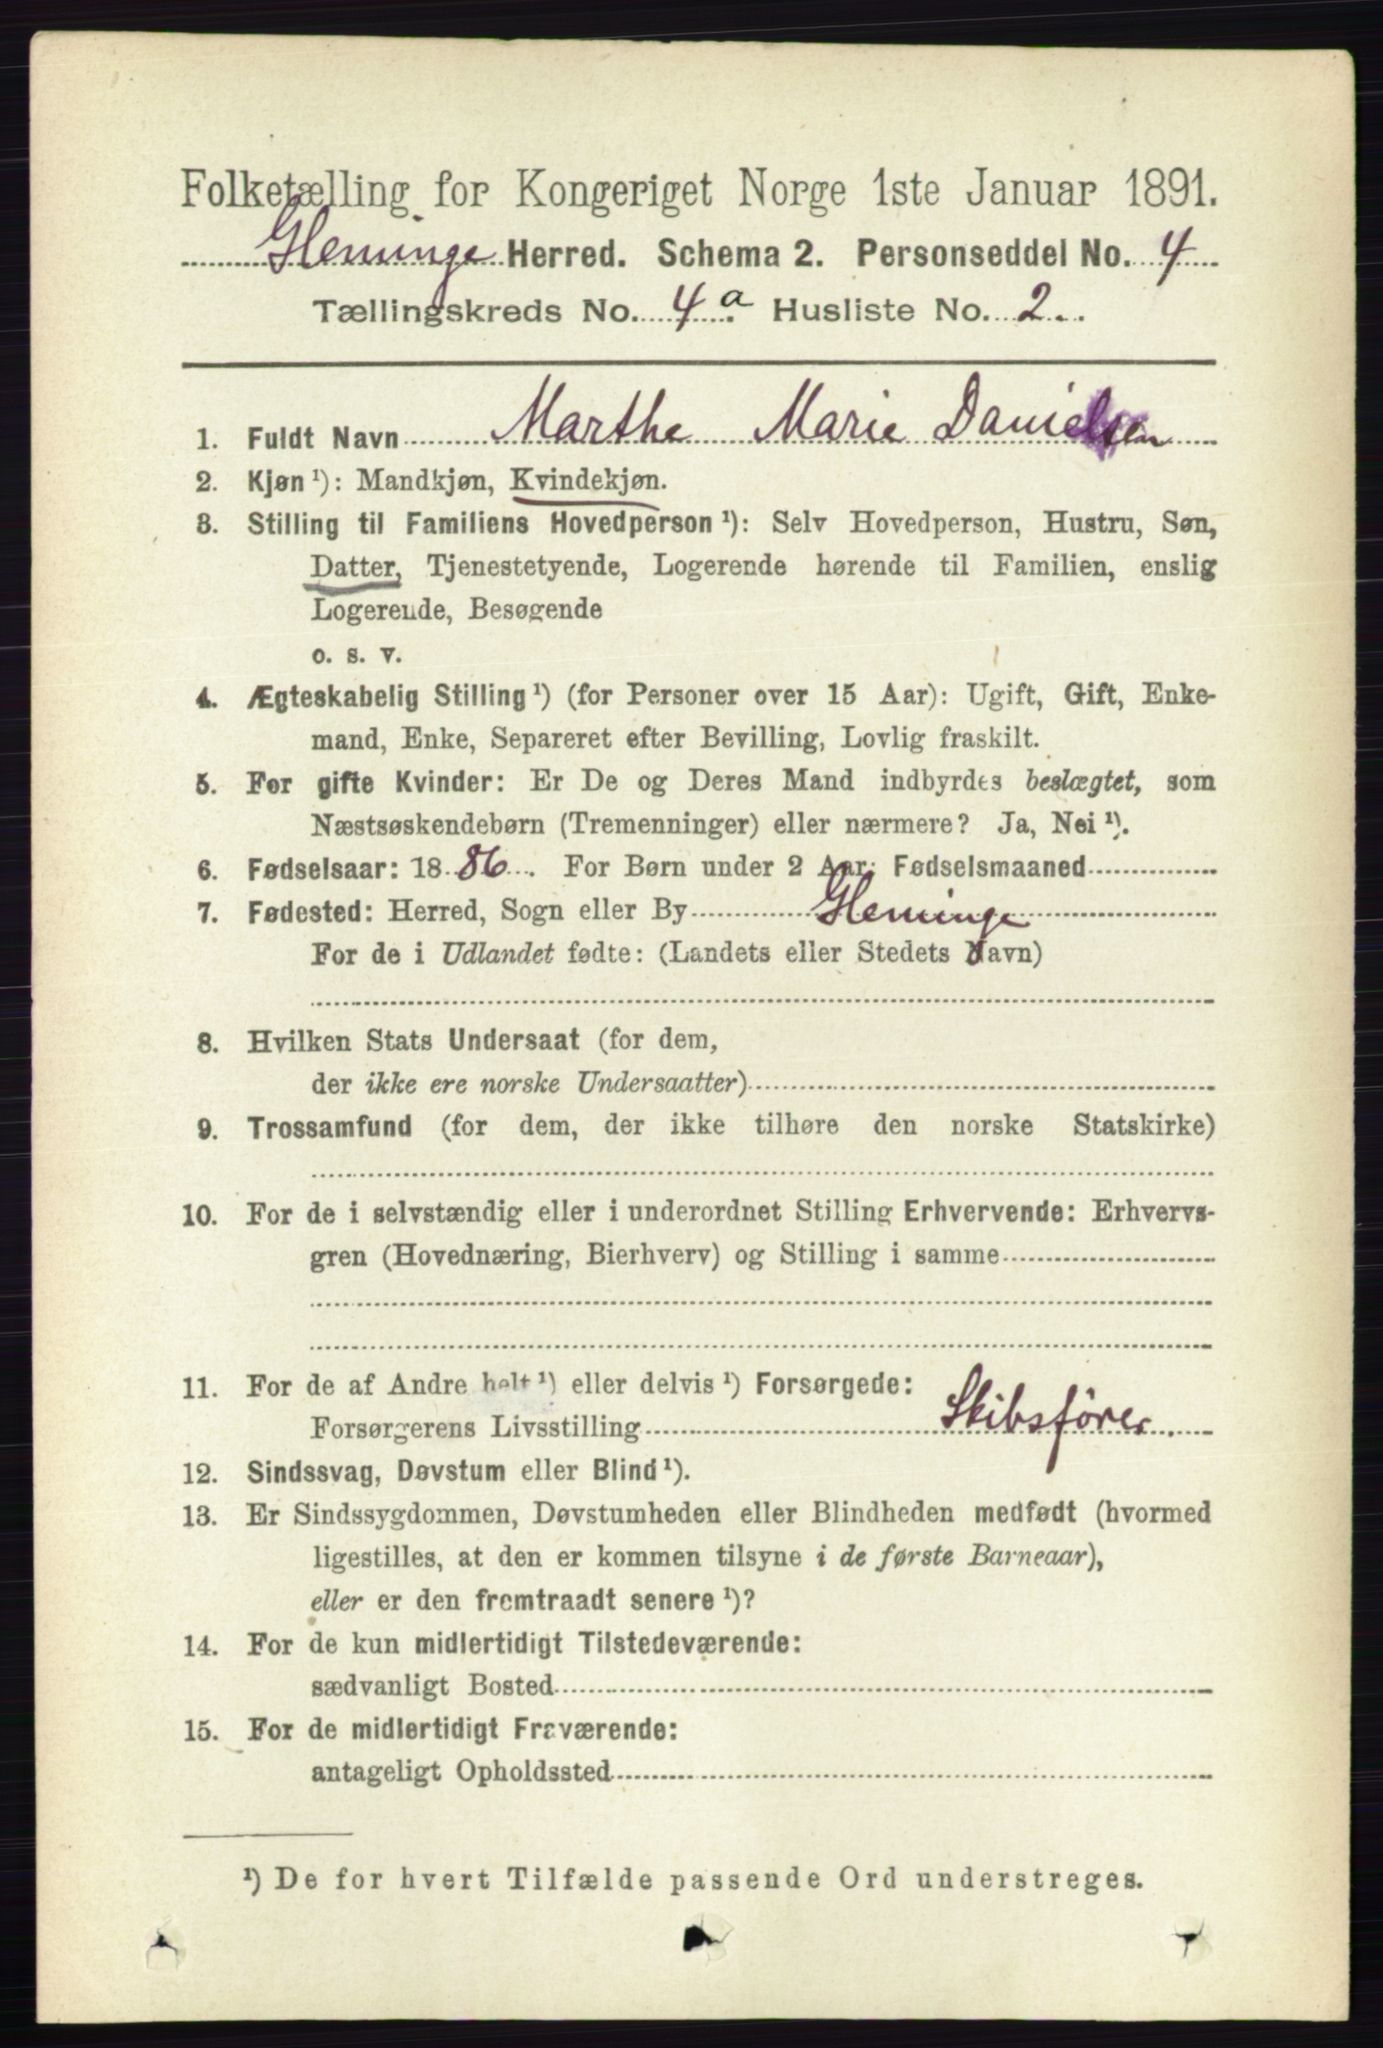 Folketælling for Kongeriget Norge 1ste Januar 1891.
Glemminge Herred. Schema 2. Personseddel No. 4
Tællingskreds No. 4 a Husliste No. 2.
1. Fuldt Navn Marthe Marie Danielsen
2. Kjøn ¹): Mandkjøn, Kvindekjøn.
3. Stilling til Familiens Hovedperson ¹): Selv Hovedperson, Hustru, Søn,
Datter, Tjenestetyende, Logerende hørende til Familien, enslig
Logerende, Besøgende
o. s. v.
4. Ægteskabelig Stilling ¹) (for Personer over 15 Aar): Ugift, Gift, Enke-
mand, Enke, Separeret efter Bevilling, Lovlig fraskilt.
5. For gifte Kvinder: Er De og Deres Mand indbyrdes beslægtet, som
Næstsøskendebørn (Tremenninger) eller nærmere? Ja, Nei ¹).
6. Fødselsaar: 1886. For Børn under 2 Aar: Fødselsmaaned
7. Fødested: Herred, Sogn eller By Glemminge
For de i Udlandet fødte: (Landets eller Stedets Navn)
8. Hvilken Stats Undersaat (for dem,
der ikke ere norske Undersaatter)
9. Trossamfund (for dem, der ikke tilhøre den norske Statskirke)
10. For de i selvstændig eller i underordnet Stilling Erhvervende: Erhvervs-
gren (Hovednæring, Bierhverv) og Stilling i samme
11. For de af Andre helt ¹) eller delvis ¹) Forsørgede:
Forsørgerens Livsstilling Skibsfører.
12. Sindssvag, Døvstum eller Blind ¹).
13. Er Sindssygdommen, Døvstumheden eller Blindheden medfødt (hvormed
ligestilles, at den er kommen tilsyne i de første Barneaar),
eller er den fremtraadt senere ¹)?
14. For de kun midlertidigt Tilstedeværende:
sædvanligt Bosted
15. For de midlertidigt Fraværende:
antageligt Opholdssted
¹) De for hvert Tilfælde passende Ord understreges.